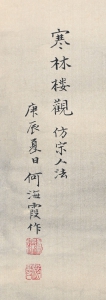 寒林楼觀 仿宗人法
庚辰夏日何海霞作